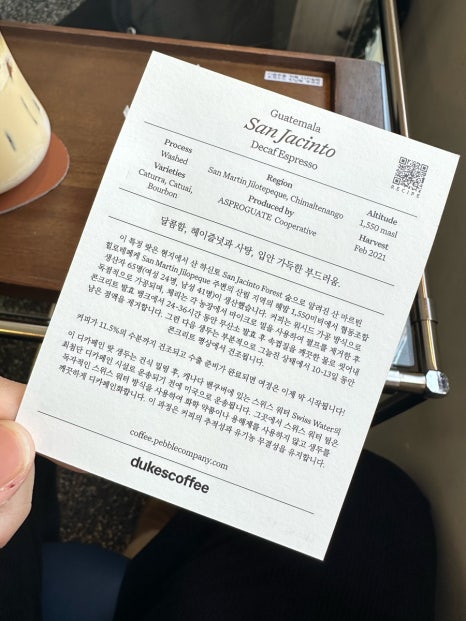 Guatemala
San Jacinto
Decaf Espresso
RECIPE
Process
Washed
Varieties
Caturra, Catuai,
Bourbon
Region
San Martin Jilotepeque, Chimaltenango
Produced by
ASPROGUATE Cooperative
Altitude
1,550 masl
Harvest
Feb 2021
달콤함, 헤이즐넛과 사탕, 입안 가득한 부드러움.
이 특정 랏은 현지에서 산 하신토 San Jacinto Forest 숲으로 알려진 산 마르틴
힐로테페케 San Martin Jilotepeque 주변의 산림 지역의 해발 1,550미터에서 협동조합
생산자 65명(여성 24명, 남성 41명)이 생산했습니다. 커피는 워시드 가공 방식으로
독점적으로 가공되며, 체리는 각 농장에서 마이크로 밀을 사용하여 펄프를 제거한 후
콘크리트 발효 탱크에서 24-36시간 동안 무산소 발효 후 속껍질을 깨끗한 물로 씻어내
남은 점액을 제거합니다. 그런 다음 생두는 부분적으로 그늘진 상태에서 10-13일 동안
콘크리트 평상에서 건조됩니다.
커피가 11.5%의 수분까지 건조되고 수출 준비가 완료되면 여정은 이제 막 시작됩니다!
이 디카페인 랏 생두는 전식 밀링 후, 캐나다 밴쿠버에 있는 스위스 워터 Swiss Water의
최첨단 디카페인 시설로 운송되기 전에 미국으로 운송됩니다. 그곳에서 스위스 워터 팀은
독자적인 스위스 워터 방식을 사용하여 화학 약품이나 용해제를 사용하지 않고 생두를
깨끗하게 디카페인화합니다. 이 과정은 커피의 추적성과 유기농 무결성을 유지합니다.
coffee.pebblecompany.com
dukescoffee